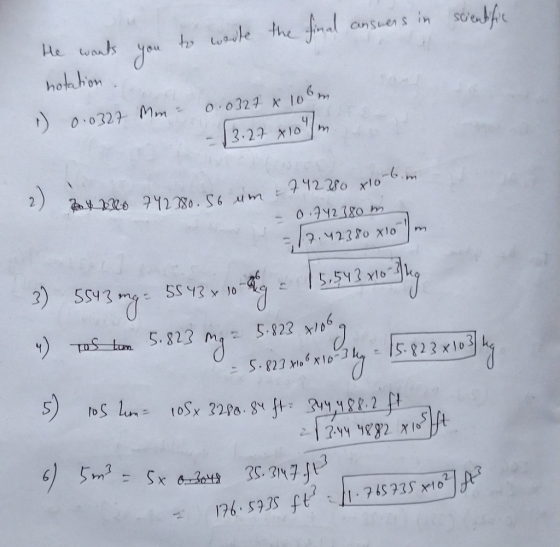 He wants you to wrote the final answers in scientific
notation.
1) 0.0327 Mm = 0.0327 × 10⁶ m
= 3.27 × 10⁴ m
2) 742380.56 μm = 742380 × 10⁻⁶ m
= 0.742380 m
= 7.42380 × 10⁻¹ m
3) 5543 mg = 5543 × 10⁻⁶ kg = 5.543 × 10⁻³ kg
4) 5.823 mg = 5.823 × 10⁶ g
= 5.823 × 10⁶ × 10⁻³ kg = 5.823 × 10³ kg
5) 105 km = 105 × 3280.84 ft = 344,488.2 ft
= 3.444882 × 10⁵ ft
6) 5m³ = 5 × 35.3147 ft³
= 176.5735 ft³ = 1.765735 × 10² ft³